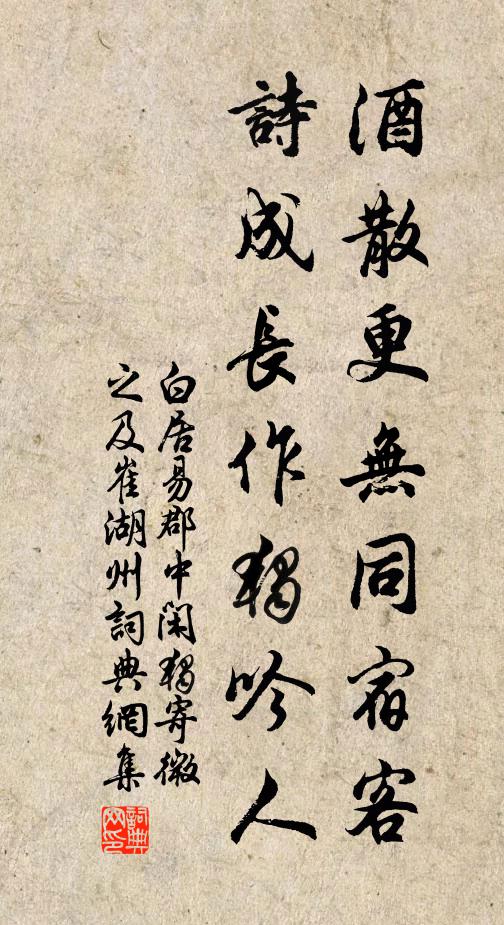 酒散更無同宿客
詩成長作獨吟人
白居易郡中閑獨寄微
之及崔湖州詞典網集
詞典网印